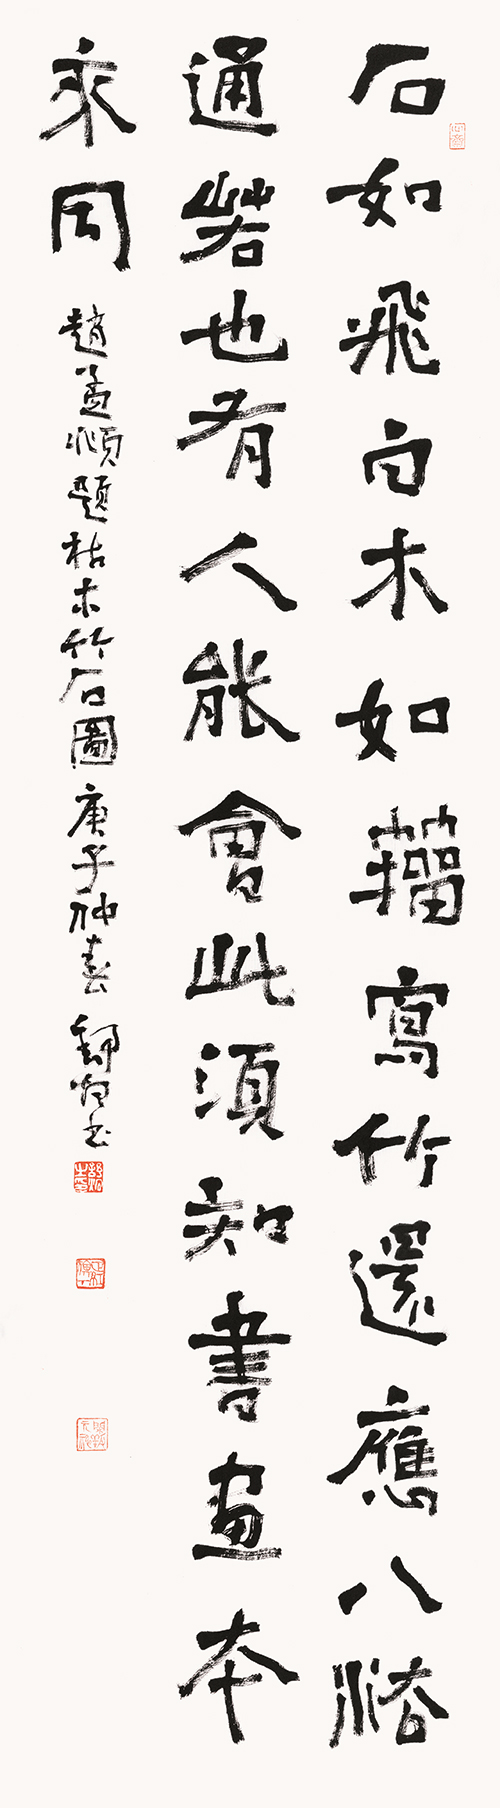 石如飛白木如籀寫竹還應八法
通若也有人能會此須知書畫本
來同
趙孟頫題枯木竹石圖 庚子仲春 書